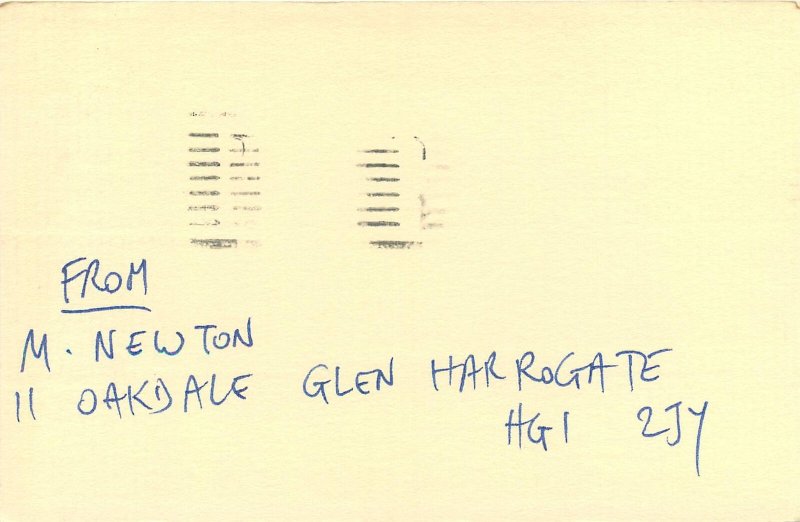 FROM
M. NEWTON
11 OAKDALE GLEN HARROGATE
HG1 2JY